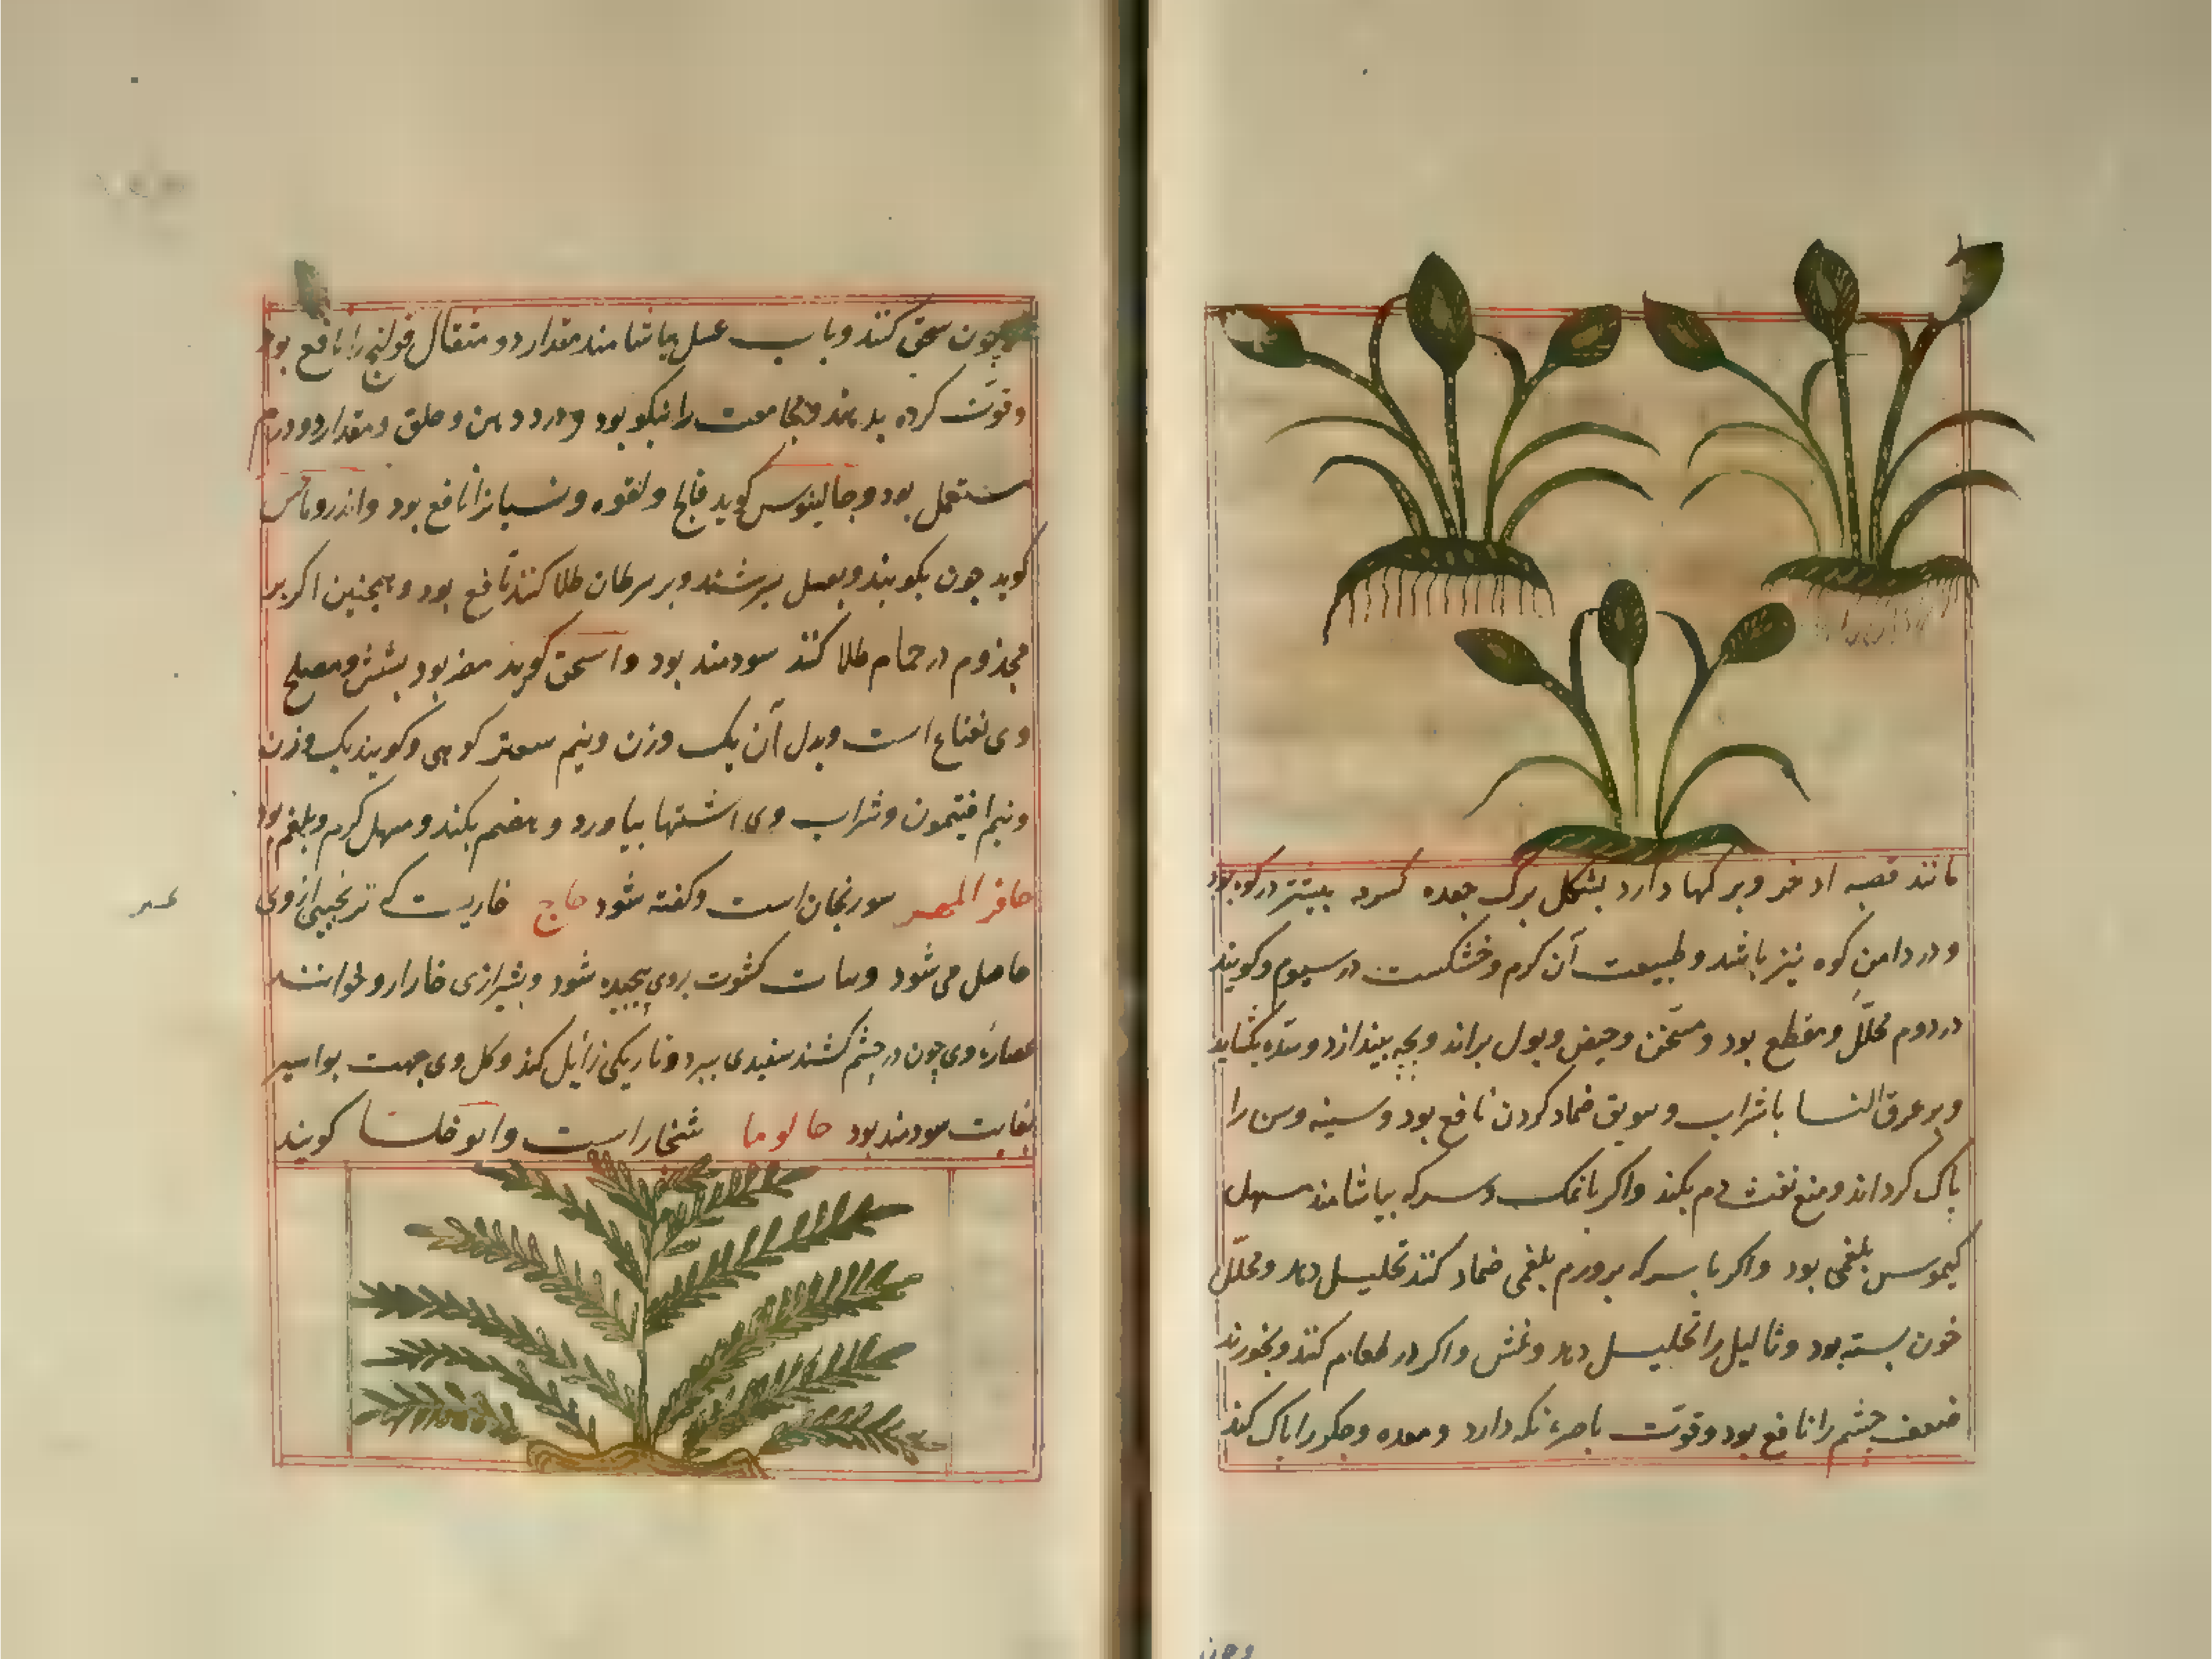 مانند قصبه اذخر و برگها دارد بشکل برگ جعده بیشتر در کوه بود
و در دامن کوه نیز باشد و طبیعت آن کرم و خشکست در سیوم و کویند
در دوم محلّل و مقطع بود و مسخن و حیض و بول براند و بچه بیندازد و سدّه بکشاید
و بر عرق النسا با شراب و سویق ضماد کردن نافع بود و سینه و شش را
پاک کرداند و منع نفث دم بکند و اکر با نمک و سرکه بیاشامند مسهل
کیموس بلغمی بود و اکر با سرکه بر ورم بلغمی ضماد کنند تحلیل دهد و محلّل
خون بسته بود و ثالیل را تحلیل دهد و اکر در طعام کنند و بخورند
ضعف چشم را نافع بود و قوّت باصره نکه دارد و معده و جکر را پاک کند
وچون
چون سحق کنند و باب عسل بیاشامند مقدار دو مثقال قولنج را نافع بود
و قوّت کرده بدهد و مجامعت را نیکو بود و درد دهن و حلق و مقدار دو درم
مستعمل بود و جالینوس کوید فالج و لقوه و نسیانرا نافع بود و اندروماخس
کوید چون بکوبند و بعسل بسرشند و بر سرطان طلا کنند نافع بود و همچنین اکر بر
مجذوم در حمام طلا کنند سودمند بود و اسحق کوید مضر بود بشش و مصلح
وی نعناع است و بدل آن یک وزن و نیم سعتر کوهی و کویند یک وزن
و نیم افتیمون و شراب وی اشتها بیاورد و هضم بکند و مسهل کرم و بلغم بود
حافر المهر سورنجان است و کفته شود حاج خاریست که ترنجبین از وی
حاصل می شود و نبات کشوت بروی پیچیده شود و بشیرازی خارارو خوانند
عصارهٔ وی چون در چشم کشند سفیدی ببرد و تاریکی زایل کند و کل وی جهت بواسیر
بغایت سودمند بود حالوما شنجار است و ابو خلسا کویند